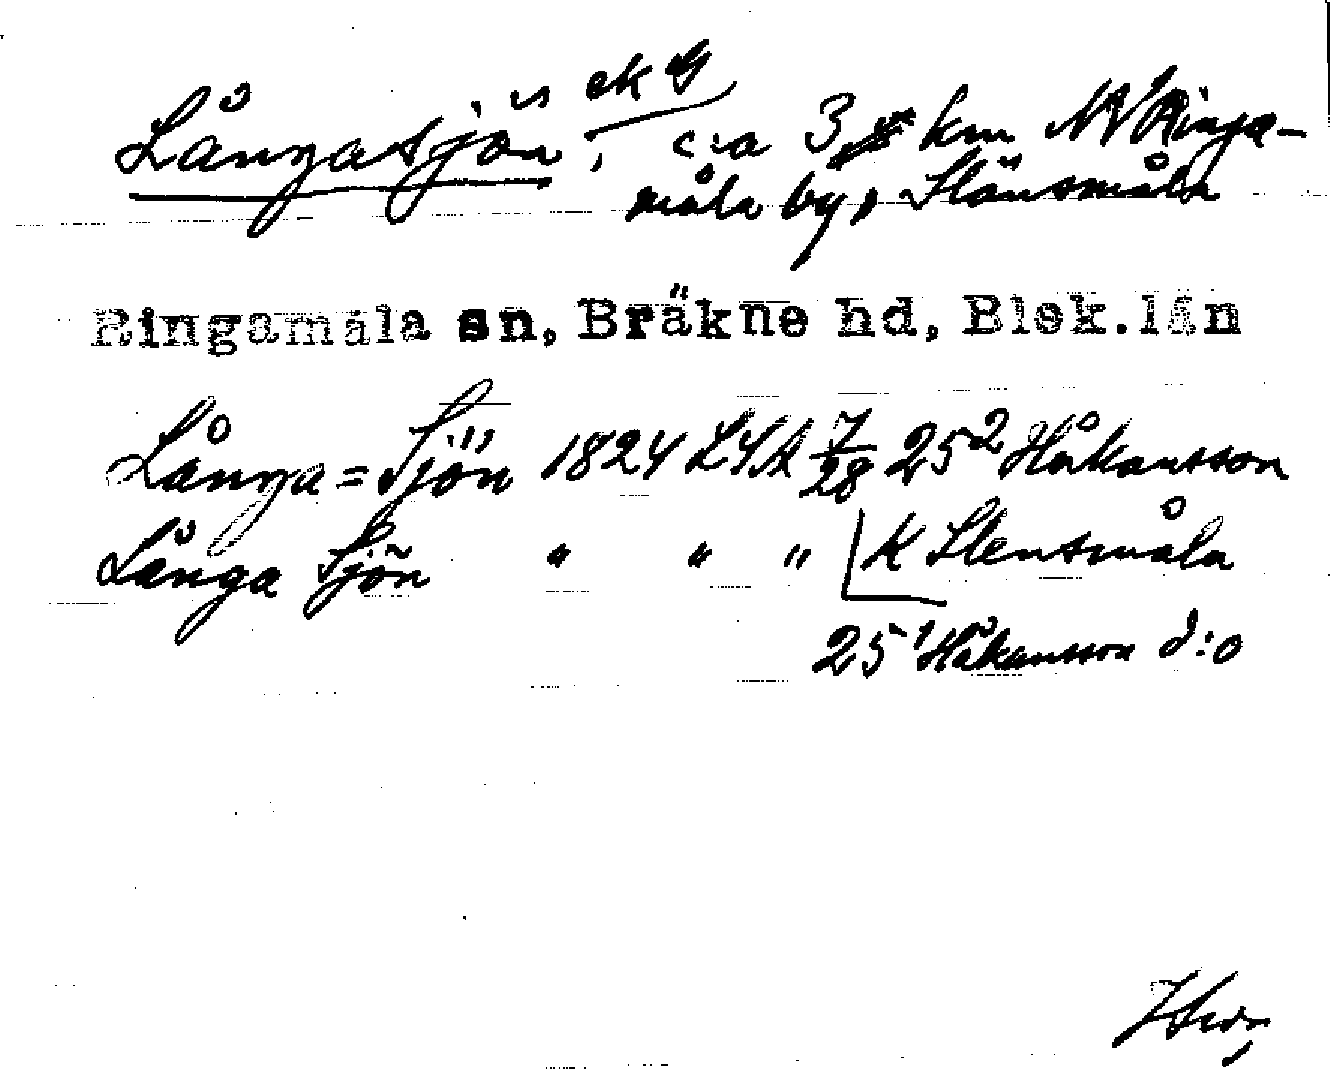 Långasjön, ek G c:a 3, km NV Ringa-
måla by, Stänsmåla
Ringamåla sn, Bräkne hd, Blek.län
Långa=Sjön 1824 LSA 7/28 25² Håkansson
Långa Sjön " " " K Stensmåla
25¹ Håkansson d:o